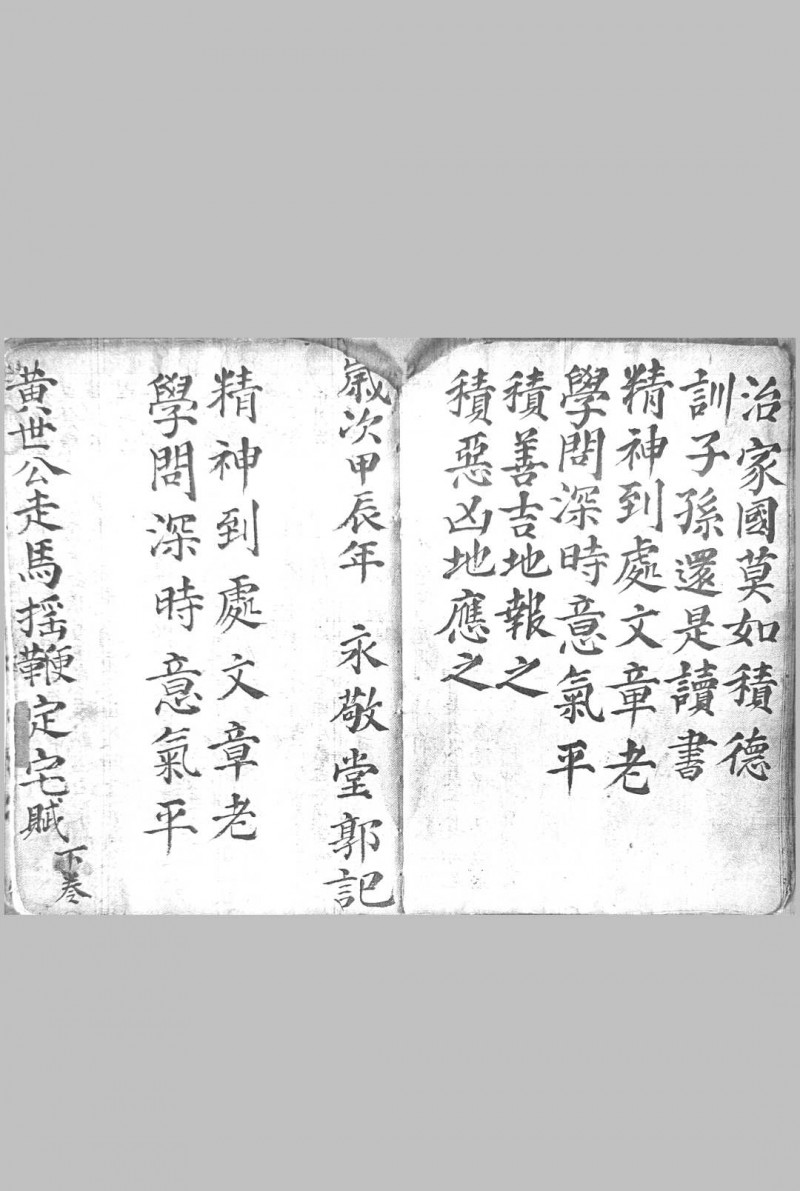 治家國莫如積德
訓子孫還是讀書
精神到處文章老
學問深時意氣平
積善吉地報之
積惡凶地應之
歲次甲辰年 永敬堂郭記
精神到處文章老
學問深時意氣平
黃世公走馬揺鞭定宅賦下巻